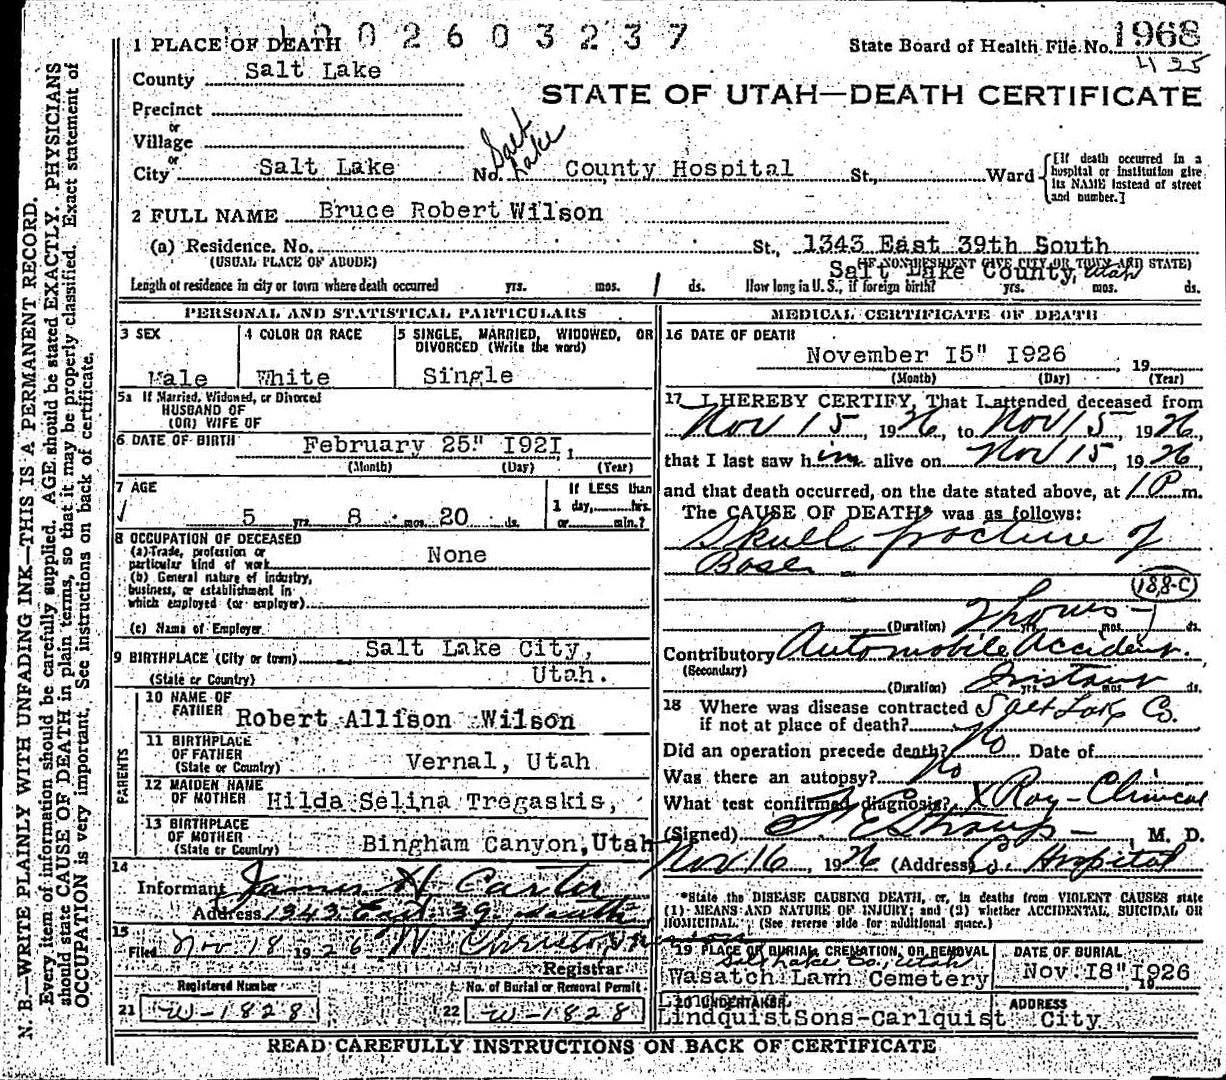 1 0 0 2 6 0 3 2 3 7
1 PLACE OF DEATH
State Board of Health File No. 1968
425
County Salt Lake
STATE OF UTAH—DEATH CERTIFICATE
Precinct
or
Village
or
City Salt Lake No. Salt Lake County Hospital St., Ward
[If death occurred in a hospital or institution give its NAME instead of street and number.]
2 FULL NAME Bruce Robert Wilson
(a) Residence. No. St., 1343 East 39th South
(USUAL PLACE OF ABODE) (IF NONRESIDENT GIVE CITY OR TOWN AND STATE)
Salt Lake County, Utah
Length of residence in city or town where death occurred yrs. mos. 1 ds. How long in U. S., if foreign birth? yrs. mos. ds.
PERSONAL AND STATISTICAL PARTICULARS
3 SEX
Male
4 COLOR OR RACE
White
5 SINGLE, MARRIED, WIDOWED, OR DIVORCED (Write the word)
Single
5a If Married, Widowed, or Divorced
HUSBAND OF
(OR) WIFE OF
6 DATE OF BIRTH February 25" 1921,
(Month) (Day) (Year)
7 AGE
5 yrs. 8 mos. 20 ds.
If LESS than
1 day, hrs.
or min.?
8 OCCUPATION OF DECEASED
(a) Trade, profession or
particular kind of work None
(b) General nature of industry,
business, or establishment in
which employed (or employer)
(c) Name of Employer
9 BIRTHPLACE (City or town) Salt Lake City,
(State or Country) Utah.
PARENTS
10 NAME OF
FATHER Robert Allison Wilson
11 BIRTHPLACE
OF FATHER
(State or Country) Vernal, Utah
12 MAIDEN NAME
OF MOTHER Hilda Selina Tregaskis,
13 BIRTHPLACE
OF MOTHER
(State or Country) Bingham Canyon, Utah
14
Informant James H Carter
Address 1343 East 39 South
15
Filed Nov. 18 1926 W
Registrar
Registered Number
21 W-1828
No. of Burial or Removal Permit
22 W-1828
MEDICAL CERTIFICATE OF DEATH
16 DATE OF DEATH
November 15" 1926, 19
(Month) (Day) (Year)
17 I HEREBY CERTIFY, That I attended deceased from
Nov 15, 1926, to Nov 15, 1926,
that I last saw him alive on Nov 15, 1926,
and that death occurred, on the date stated above, at 1 P m.
The CAUSE OF DEATH* was as follows:
Skull fracture of
Base
188-C
(Duration) 2 hours yrs. mos. ds.
Contributory Automobile Accident.
(Secondary)
(Duration) Instant yrs. mos. ds.
18 Where was disease contracted Salt Lake Co.
if not at place of death?
Did an operation precede death? No Date of
Was there an autopsy? No
What test confirmed diagnosis? X Ray - Clinical
(Signed) M. D.
Nov 16, 1926 (Address) Co. Hospital
*State the DISEASE CAUSING DEATH, or, in deaths from VIOLENT CAUSES state
(1) MEANS AND NATURE OF INJURY; and (2) whether ACCIDENTAL, SUICIDAL OR
HOMICIDAL. (See reverse side for additional space.)
19 PLACE OF BURIAL, CREMATION, OR REMOVAL
Salt Lake Co. Utah
Wasatch Lawn Cemetery
DATE OF BURIAL
Nov. 18" 1926
19
20 UNDERTAKER
Lindquist Sons-Carlquist
ADDRESS
City
READ CAREFULLY INSTRUCTIONS ON BACK OF CERTIFICATE
N. B.—WRITE PLAINLY WITH UNFADING INK—THIS IS A PERMANENT RECORD.
Every item of information should be carefully supplied. AGE should be stated EXACTLY. PHYSICIANS
should state CAUSE OF DEATH in plain terms, so that it may be properly classified. Exact statement of
OCCUPATION is very important. See instructions on back of certificate.